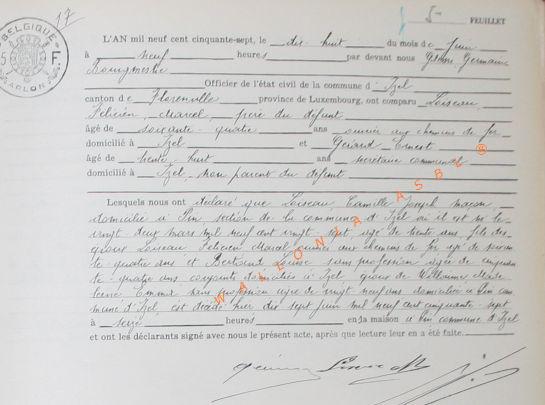 BELGIQUE
5 F.
ARLON
17
5 FEUILLET
L'AN mil neuf cent cinquante-sept, le dix huit du mois de juin
à neuf heures par devant nous Germain
Bourgmestre
Officier de l'état civil de la commune d'Izel
canton de Florenville province de Luxembourg, ont comparu Loiseau
Félicien, Marcel, père du défunt
âgé de soixante-quatre ans ouvrier aux chemins de fer
domicilié à Izel et Gérard Ernest
âgé de trente huit ans secrétaire communal
domicilié à Izel, non parent du défunt
Lesquels nous ont déclaré que Loiseau, Camille Joseph maçon
domicilié à Pin section de la commune d'Izel où il est né le
vingt deux mars mil neuf cent vingt sept âgé de trente ans fils des
époux Loiseau Félicien Marcel ouvrier aux chemins de fer âgé de soixan
te quatre ans et Bertrand Louise sans profession âgée de cinquan
te quatre ans conjoints domiciliés à Izel, époux de Marie
Emma sans profession âgée de vingt neuf ans domiciliée à Pin com
mune d'Izel, est décédé hier dix sept juin mil neuf cent cinquante sept
à seize heures en la maison à Pin commune d'Izel
et ont les déclarants signé avec nous le présent acte, après que lecture leur en a été faite.
WALLONIA ASBL ®